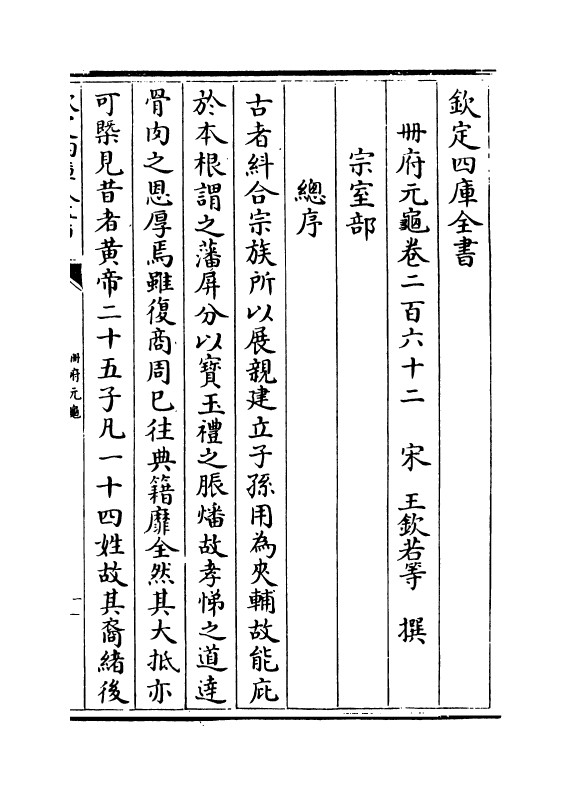 欽定四庫全書
冊府元龜卷二百六十二　宋　王欽若等　撰
宗室部
總序
古者糾合宗族所以展親建立子孫用為夾輔故能庇
於本根謂之藩屏分以寶玉禮之脤燔故孝悌之道達
骨肉之恩厚焉雖復商周已往典籍靡全然其大抵亦
可槩見昔者黄帝二十五子凡一十四姓故其裔緒後
冊府元龜
一